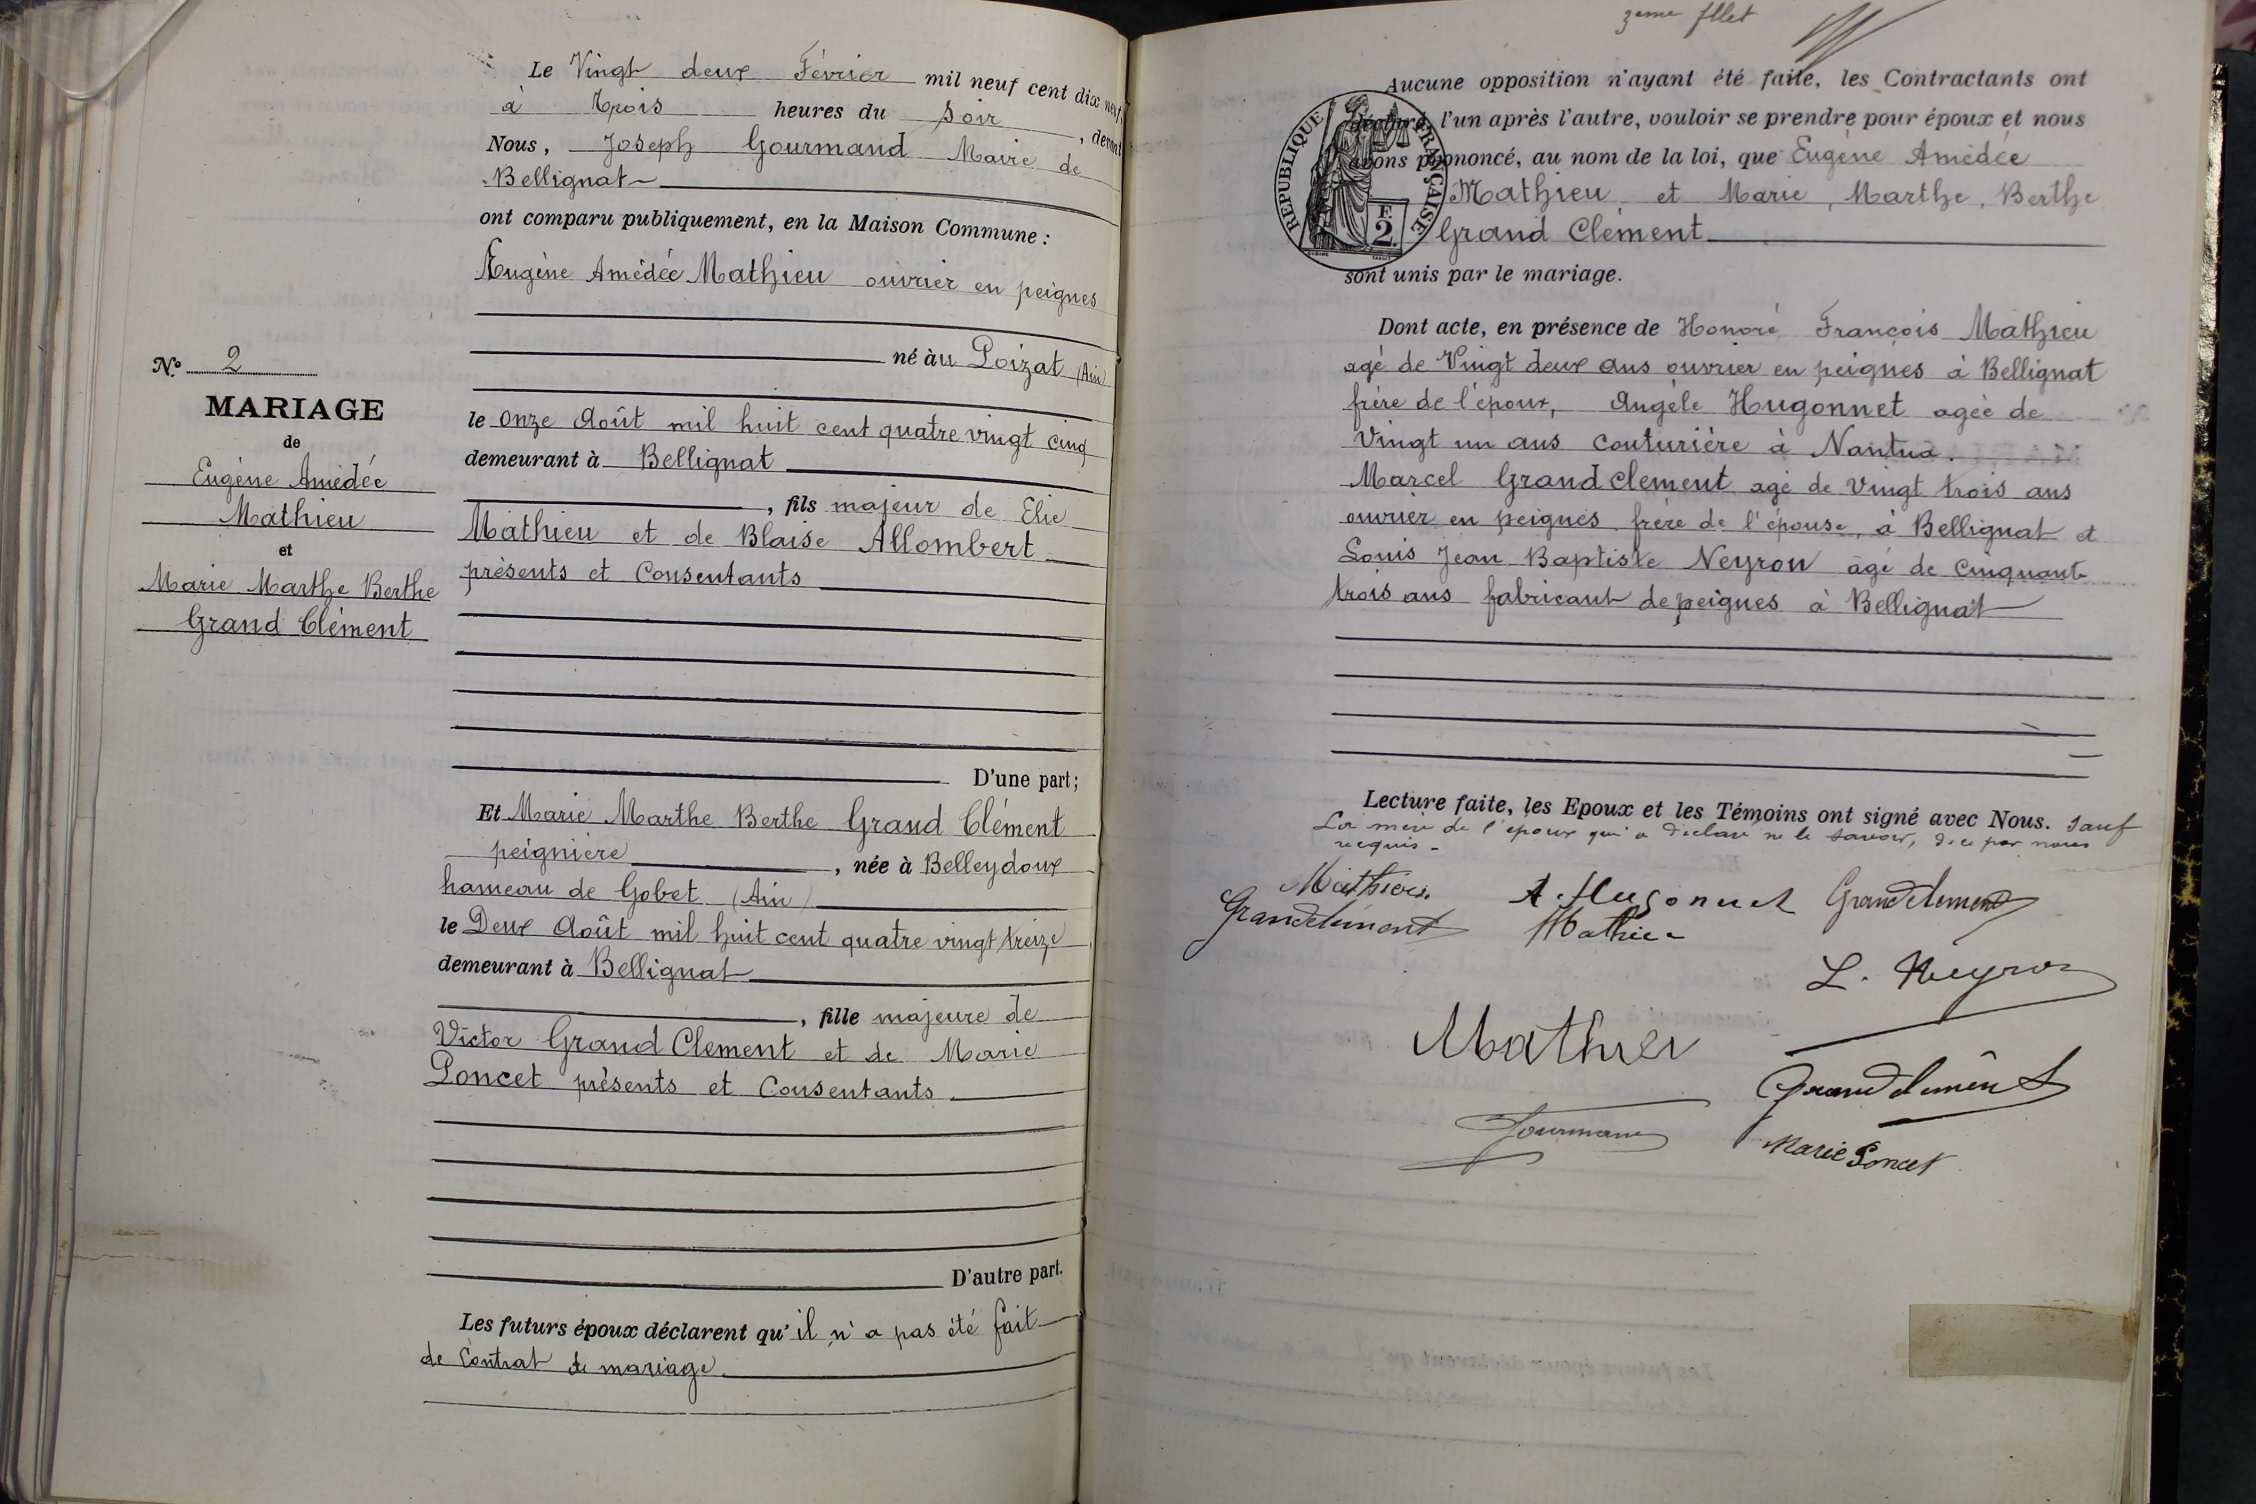 Le Vingt deux Février mil neuf cent dix neuf,
à trois heures du soir, devant
Nous, Joseph Gourmand Maire de
Bellignat
ont comparu publiquement, en la Maison Commune :
Eugène Amédée Mathieu ouvrier en peignes
né àu Poizat (Ain)
le onze Août mil huit cent quatre vingt cinq
demeurant à Bellignat
, fils majeur de Elie
Mathieu et de Blaise Allombert
présents et Consentants
D'une part ;
Et Marie Marthe Berthe Grand Clément
peignière, née à Belleydoux
hameau de Gobet (Ain)
le Deux Août mil huit cent quatre vingt treize
demeurant à Bellignat
, fille majeure de
Victor Grand Clement et de Marie
Poncet présents et Consentants
D'autre part.
Les futurs époux déclarent qu'il n'a pas été fait
de Contrat de mariage.
N.º 2
MARIAGE
de
Eugène Amédée
Mathieu
et
Marie Marthe Berthe
Grand Clément
3eme fllet
Aucune opposition n'ayant été faite, les Contractants ont
déclaré, l'un après l'autre, vouloir se prendre pour époux et nous
avons prononcé, au nom de la loi, que Eugène Amédée
Mathieu et Marie, Marthe, Berthe
Grand Clément
sont unis par le mariage.
RÉPUBLIQUE FRANÇAISE
F.
2.
Dont acte, en présence de Honoré François Mathieu
agé de Vingt deux ans ouvrier en peignes à Bellignat
frère de l'époux, Angèle Hugonnet agée de
Vingt un ans couturière à Nantua.
Marcel Grand clement agé de vingt trois ans
ouvrier en peignes frère de l'épouse, à Bellignat et
Louis Jean Baptiste Neyron âgé de cinquante
trois ans fabricant de peignes à Bellignat
Lecture faite, les Epoux et les Témoins ont signé avec Nous. sauf
La mère de l'époux qui a déclaré ne le savoir, de ce par nous
requis.
Mathieu A. Hugonnet Grandclement
Grandclément Mathieu
L. Neyron
Mathieu
Grandclément
Gourmand
Marie Poncet